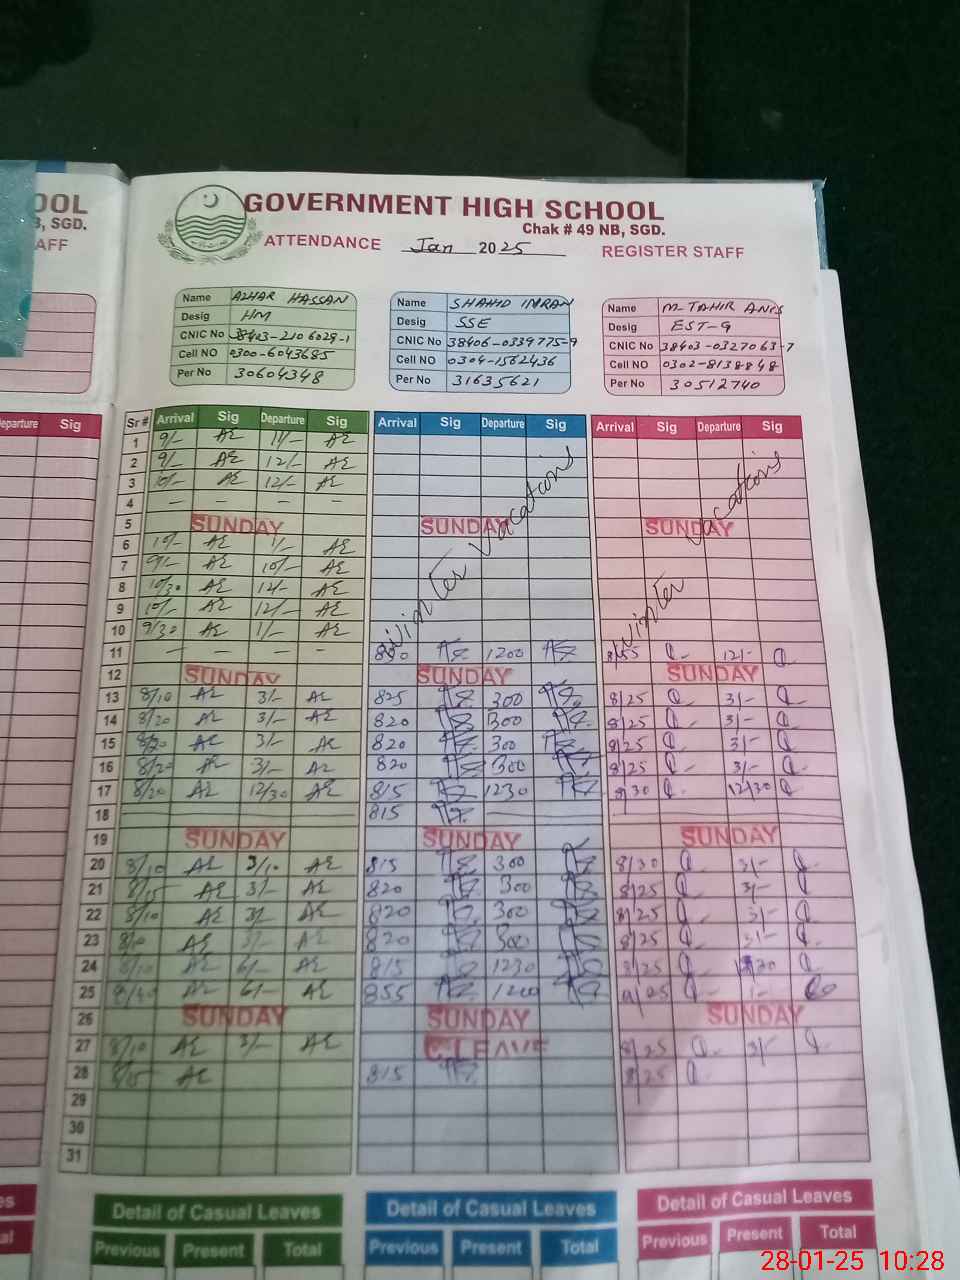 OOL
B, SGD.
AFF
GOVERNMENT HIGH SCHOOL
Chak # 49 NB, SGD.
ATTENDANCE Jan 2025 REGISTER STAFF
Name AZHAR HASSAN
Desig HM
CNIC No 38403-2106029-1
Cell NO 0300-6043685
Per No 30604348
Name SHAHID IMRAN
Desig SSE
CNIC No 38406-0339775-9
Cell NO 0304-1562436
Per No 31635621
Name M-TAHIR ANIS
Desig EST-9
CNIC No 38403-0327063-7
Cell NO 0302-8138848
Per No 30512740
eparture Sig
Sr # Arrival Sig Departure Sig Arrival Sig Departure Sig Arrival Sig Departure Sig
1 9/- AE 11/- AE
2 9/- AE 12/- AE
3 10/- AE 12/- AE
4 - - - -
5 SUNDAY SUNDAY SUNDAY
Winter Vacations Winter Vacations
6 10/- AE 1/- AE
7 9/- AE 10/- AE
8 10/30 AE 12/- AE
9 10/- AE 12/- AE
10 9/30 AE 1/- AE
11 - - - - 850 1200 8/55 12/-
12 SUNDAY SUNDAY SUNDAY
13 8/10 AE 3/- AE 825 300 8/25 3/-
14 8/20 AE 3/- AE 820 300 8/25 3/-
15 8/20 AE 3/- AE 820 300 8/25 3/-
16 8/20 AE 3/- AE 820 300 8/25 3/-
17 8/20 AE 12/30 AE 815 1230 8/30 12/30
18 815
19 SUNDAY SUNDAY SUNDAY
20 8/10 AE 3/10 AE 815 300 8/30 3/-
21 8/15 AE 3/- AE 820 300 8/25 3/-
22 8/10 AE 3/- AE 820 300 8/25 3/-
23 8/10 AE 3/- AE 820 300 8/25 3/-
24 8/10 AE 6/- AE 815 1230 8/25
25 AE 6/- AE 855 1200 9/25 1/-
26 SUNDAY SUNDAY SUNDAY
27 8/10 AE 3/- AE C.LEAVE 8/25 3/-
28 8/15 AE 815 8/25
29
30
31
Detail of Casual Leaves Detail of Casual Leaves Detail of Casual Leaves
Previous Present Total Previous Present Total Previous Present Total
es
al
28-01-25 10:28